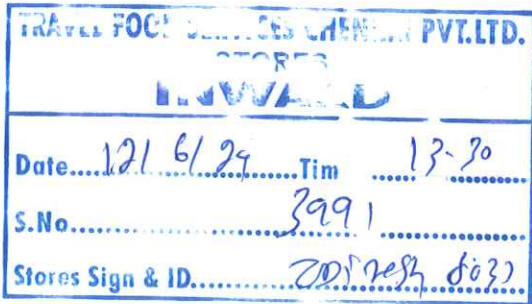 TRAVEL FOOD SERVICES CHENNAI PVT.LTD.
STORES
INWARD
Date....12/ 6/ 24....Tim ....13-30....
S.No....3991....
Stores Sign & ID....